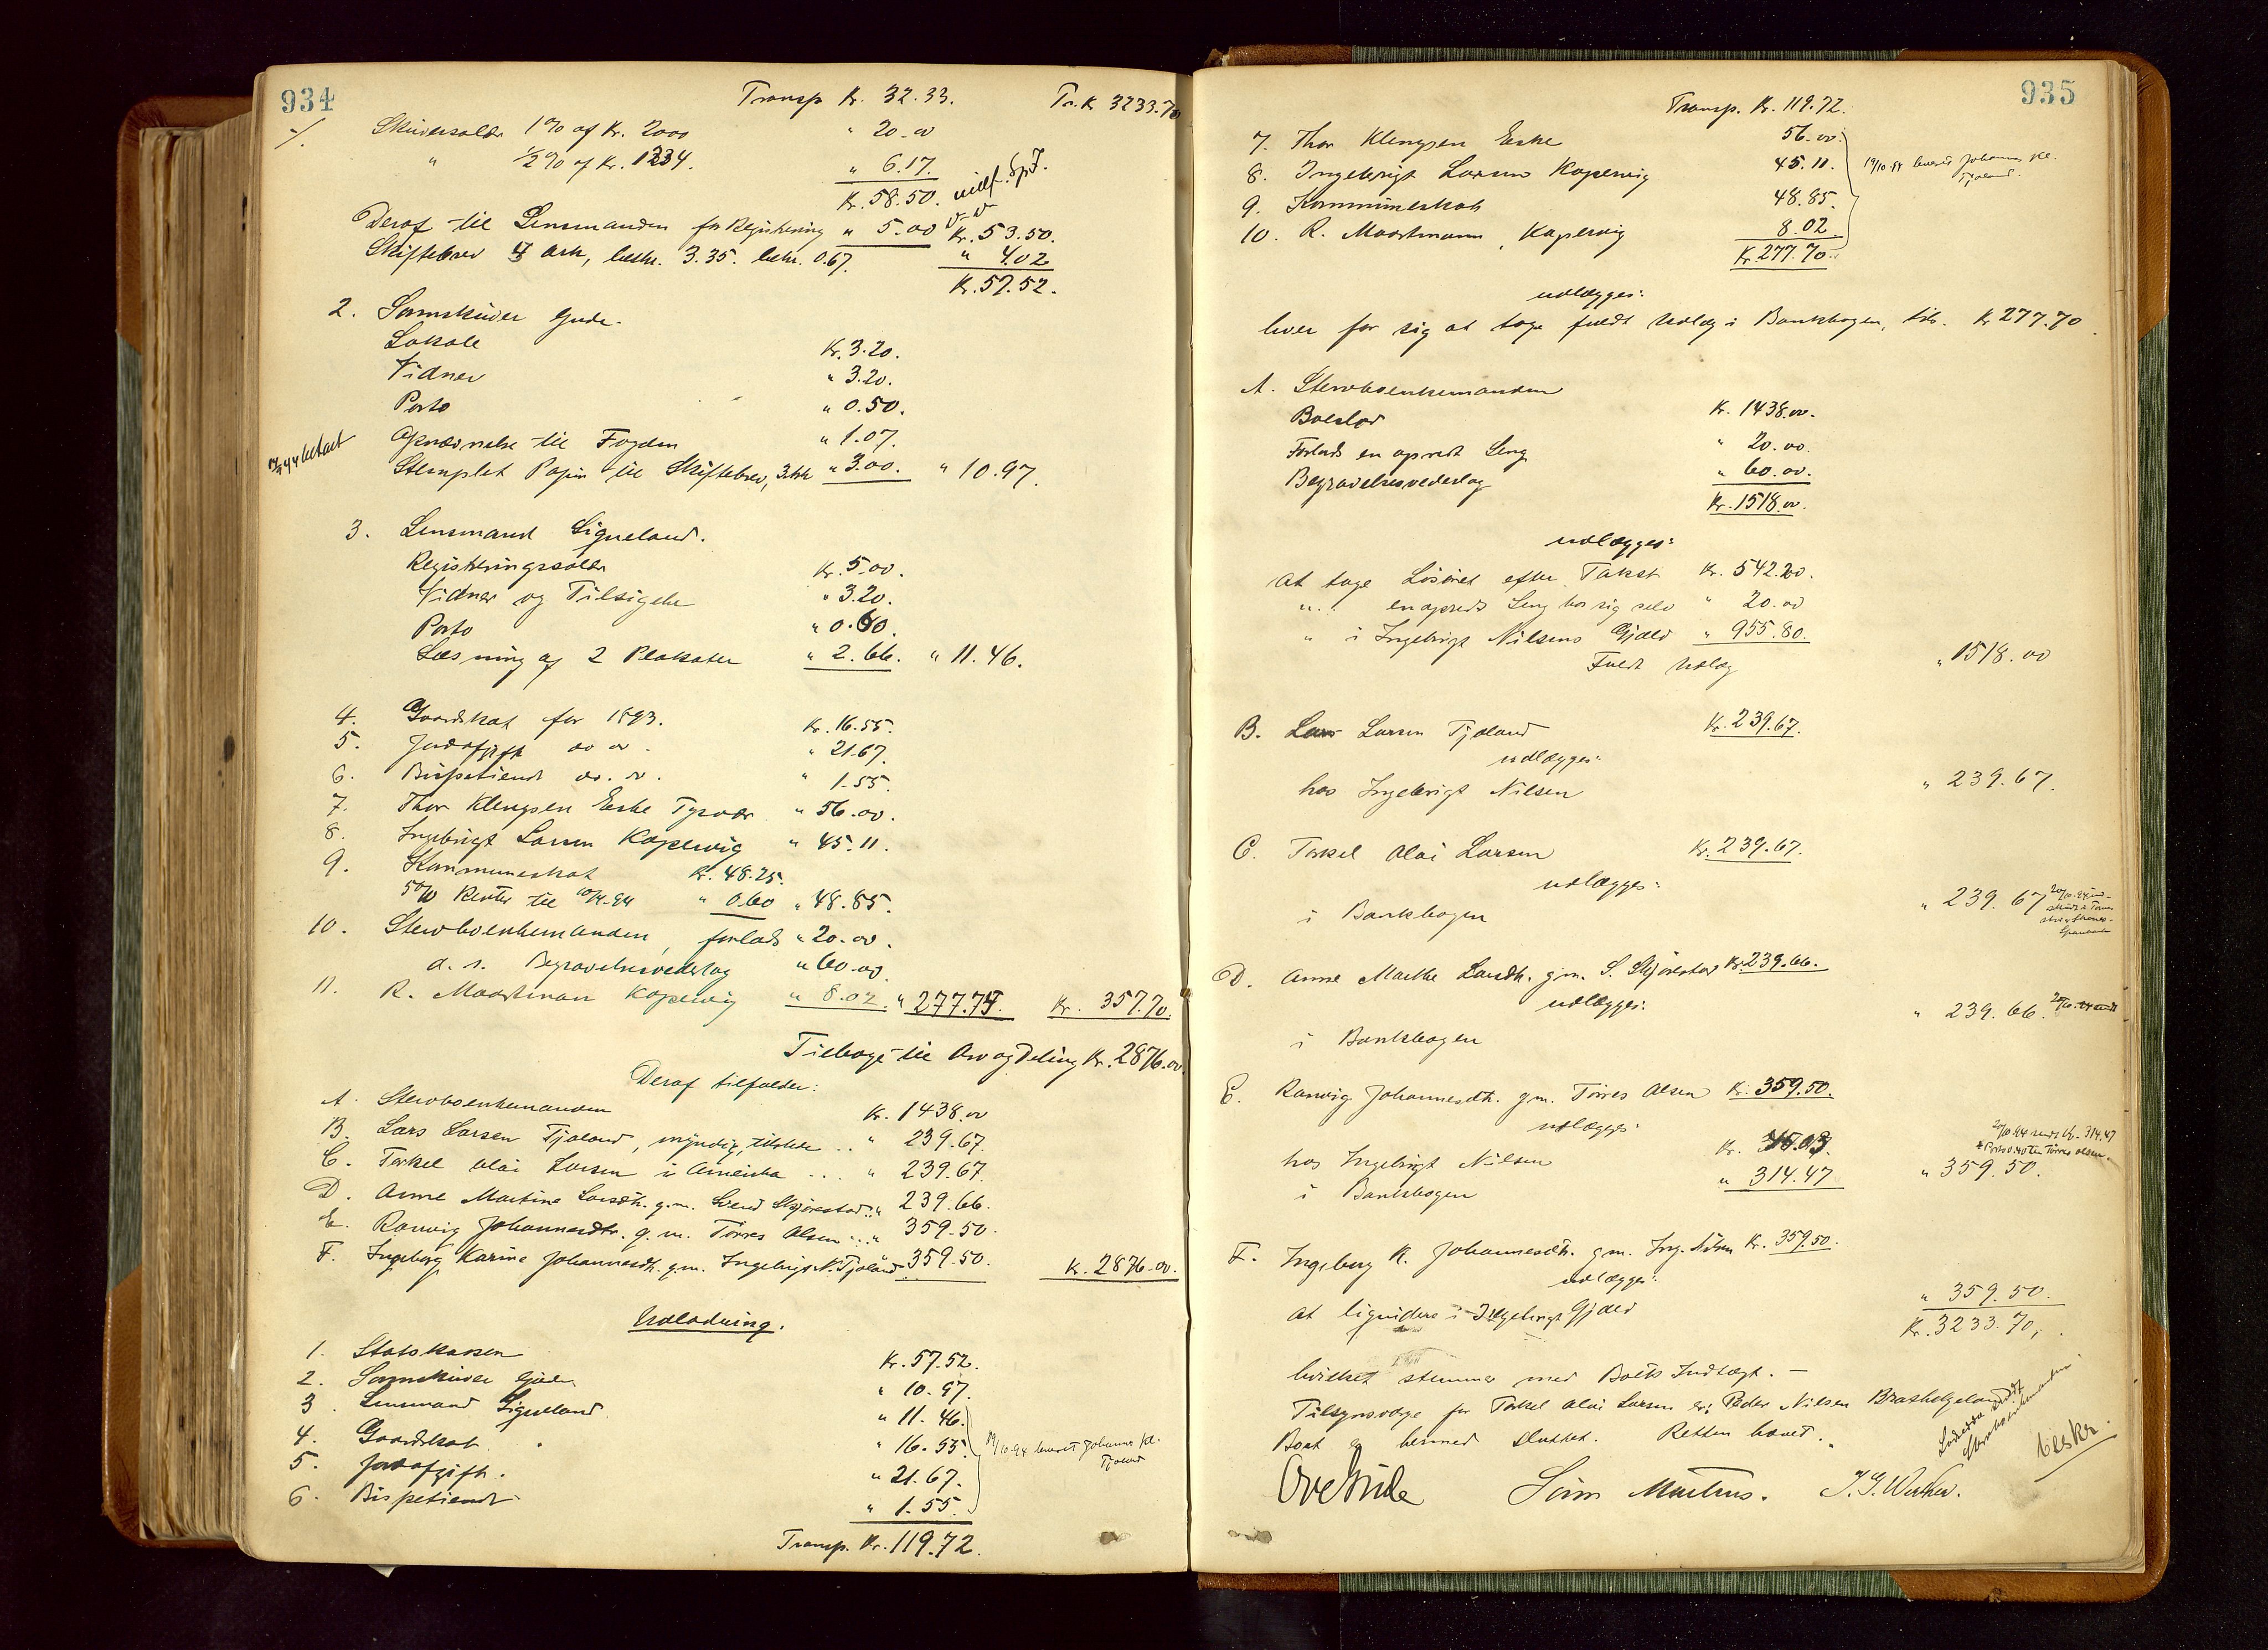 934
Transp Kr. 32.33. Tr. Kr 3233.70
1/. Skiversalær 1% af Kr. 2000 " 20.00
" 1/2% af Kr. 1234. " 6.17.
Kr. 58.50.
Deraf til Lensmanden for Registrering " 5.00 Kr. 53.50.
Skiftebrev 4 Ark, beskr. 3.35. bekr. 0.67. " 4.02
Kr. 57.52.
2. Sorenskriver Gude.
Lokale Kr. 3.20.
Vidner " 3.20.
Porto " 0.50.
Opnævnelse til Fogden " 1.07.
Stemplet Papir til Skiftebrev, " 3.00. " 10.97.
3. Lensmand Signeland.
Registreringssalær Kr. 5.00.
Vidner og Tilsigelse " 3.20.
Porto " 0.60.
Læsning af 2 Plakater " 2.66. " 11.46.
4. Gaardskat for 1893. Kr. 16.55.
5. Jordafgift do do. " 21.67.
6. Bispetiende do. do. " 1.55.
7. Thor Klengsen Eeske Tysvær " 56.00.
8. Ingebrigt Larsen Kopervig " 45.11.
9. Kommuneskat Kr. 48.25.
5% Renter til 10/4-94 " 0.60 " 48.85.
10. Stervboenkemanden, forlods " 20.00.
d. s. Begravelsesvederlag " 60.00
11. R. Maartman Kopervig " 8.02. " 277.75. Kr. 357.70.
Tilbage til Arv og Deling Kr. 2876.00
Deraf tilfalder:
A. Stervboenkemanden Kr. 1438.00
B. Lars Larsen Tjøland, myndig, tilstede .. " 239.67.
C. Torkel Olai Larsen i Amerika ... " 239.67.
D. Anne Martine Larsdtr. g. m. Svend Skjørestad .. " 239.66.
E. Ranvig Johannesdtr. g. m. Tørres Olsen ... " 359.50.
F. Ingeborg Karine Johannesdtr. g. m. Ingebrigt N. Tjøland " 359.50. Kr. 2876.00.
Udlodning.
1. Statskassen Kr. 57.52.
2. Sorenskriver Gude " 10.97.
3. Lensmand Signeland " 11.46.
4. Gaardskat " 16.55.
19/10.94 leveret Johannes Kl. Tjøland
5. Jordafgift. " 21.67.
6. Bispetiende " 1.55.
Transp. Kr. 119.72.
935
Transp. Kr. 119.72.
7. Thor Klengsen Eeske 56.00.
8. Ingebrigt Larsen Kopervig 45.11.
19/10.94 leveret Johannes Kl. Tjøland.
9. Kommuneskat 48.85.
10. R. Maartmann, Kopervig 8.02
Kr. 277.70.
udlægges:
hver for sig at tage fuldt Udlæg i Bankbogen, tils. Kr 277.70
A. Stervboenkemanden
Boeslod Kr. 1438.00.
Forlods en opredt Seng " 20.00.
Begravelsesvederlag " 60.00.
Kr. 1518.00.
udlægges:
at tage Løsøret efter Takst Kr. 542.20.
" " en opredt Seng hos sig selv " 20.00
" i Ingebrigt Nilsens Gjæld " 955.80.
Fuldt Udlæg " 1518.00
B. Lars Larsen Tjøland Kr. 239.67.
udlægges:
hos Ingebrigt Nilsen " 239.67.
C. Torkel Olai Larsen Kr. 239.67.
udlægges:
i Bankbogen " 239.67
D. Anne Marthe Larsdtr. g. m. S. Skjørestad Kr. 239.66.
udlægges:
i Bankbogen " 239.66.
E. Ranvig Johannesdtr. g. m. Tørres Olsen Kr. 359.50.
udlægges:
20/10.94 sendt Kr. 314.47
÷ Porto 0.40 til Tørres Olsen.
hos Ingebrigt Nilsen Kr. 45.03.
i Bankbogen " 314.47 " 359.50.
F. Ingeborg K. Johannesdtr. g. m. Ing. Nilsen Kr. 359.50.
udlægges:
at liquidere i Ingebrigts Gjæld " 359.50.
Kr. 3233.70,
hvilket stemmer med Boets Indtægt. —
Tilsynsværge for Torkel Olai Larsen er: Peder Nilsen Brækhelgeland
Boet er hermed sluttet. Retten hævet.
Ove Gude
beskr.